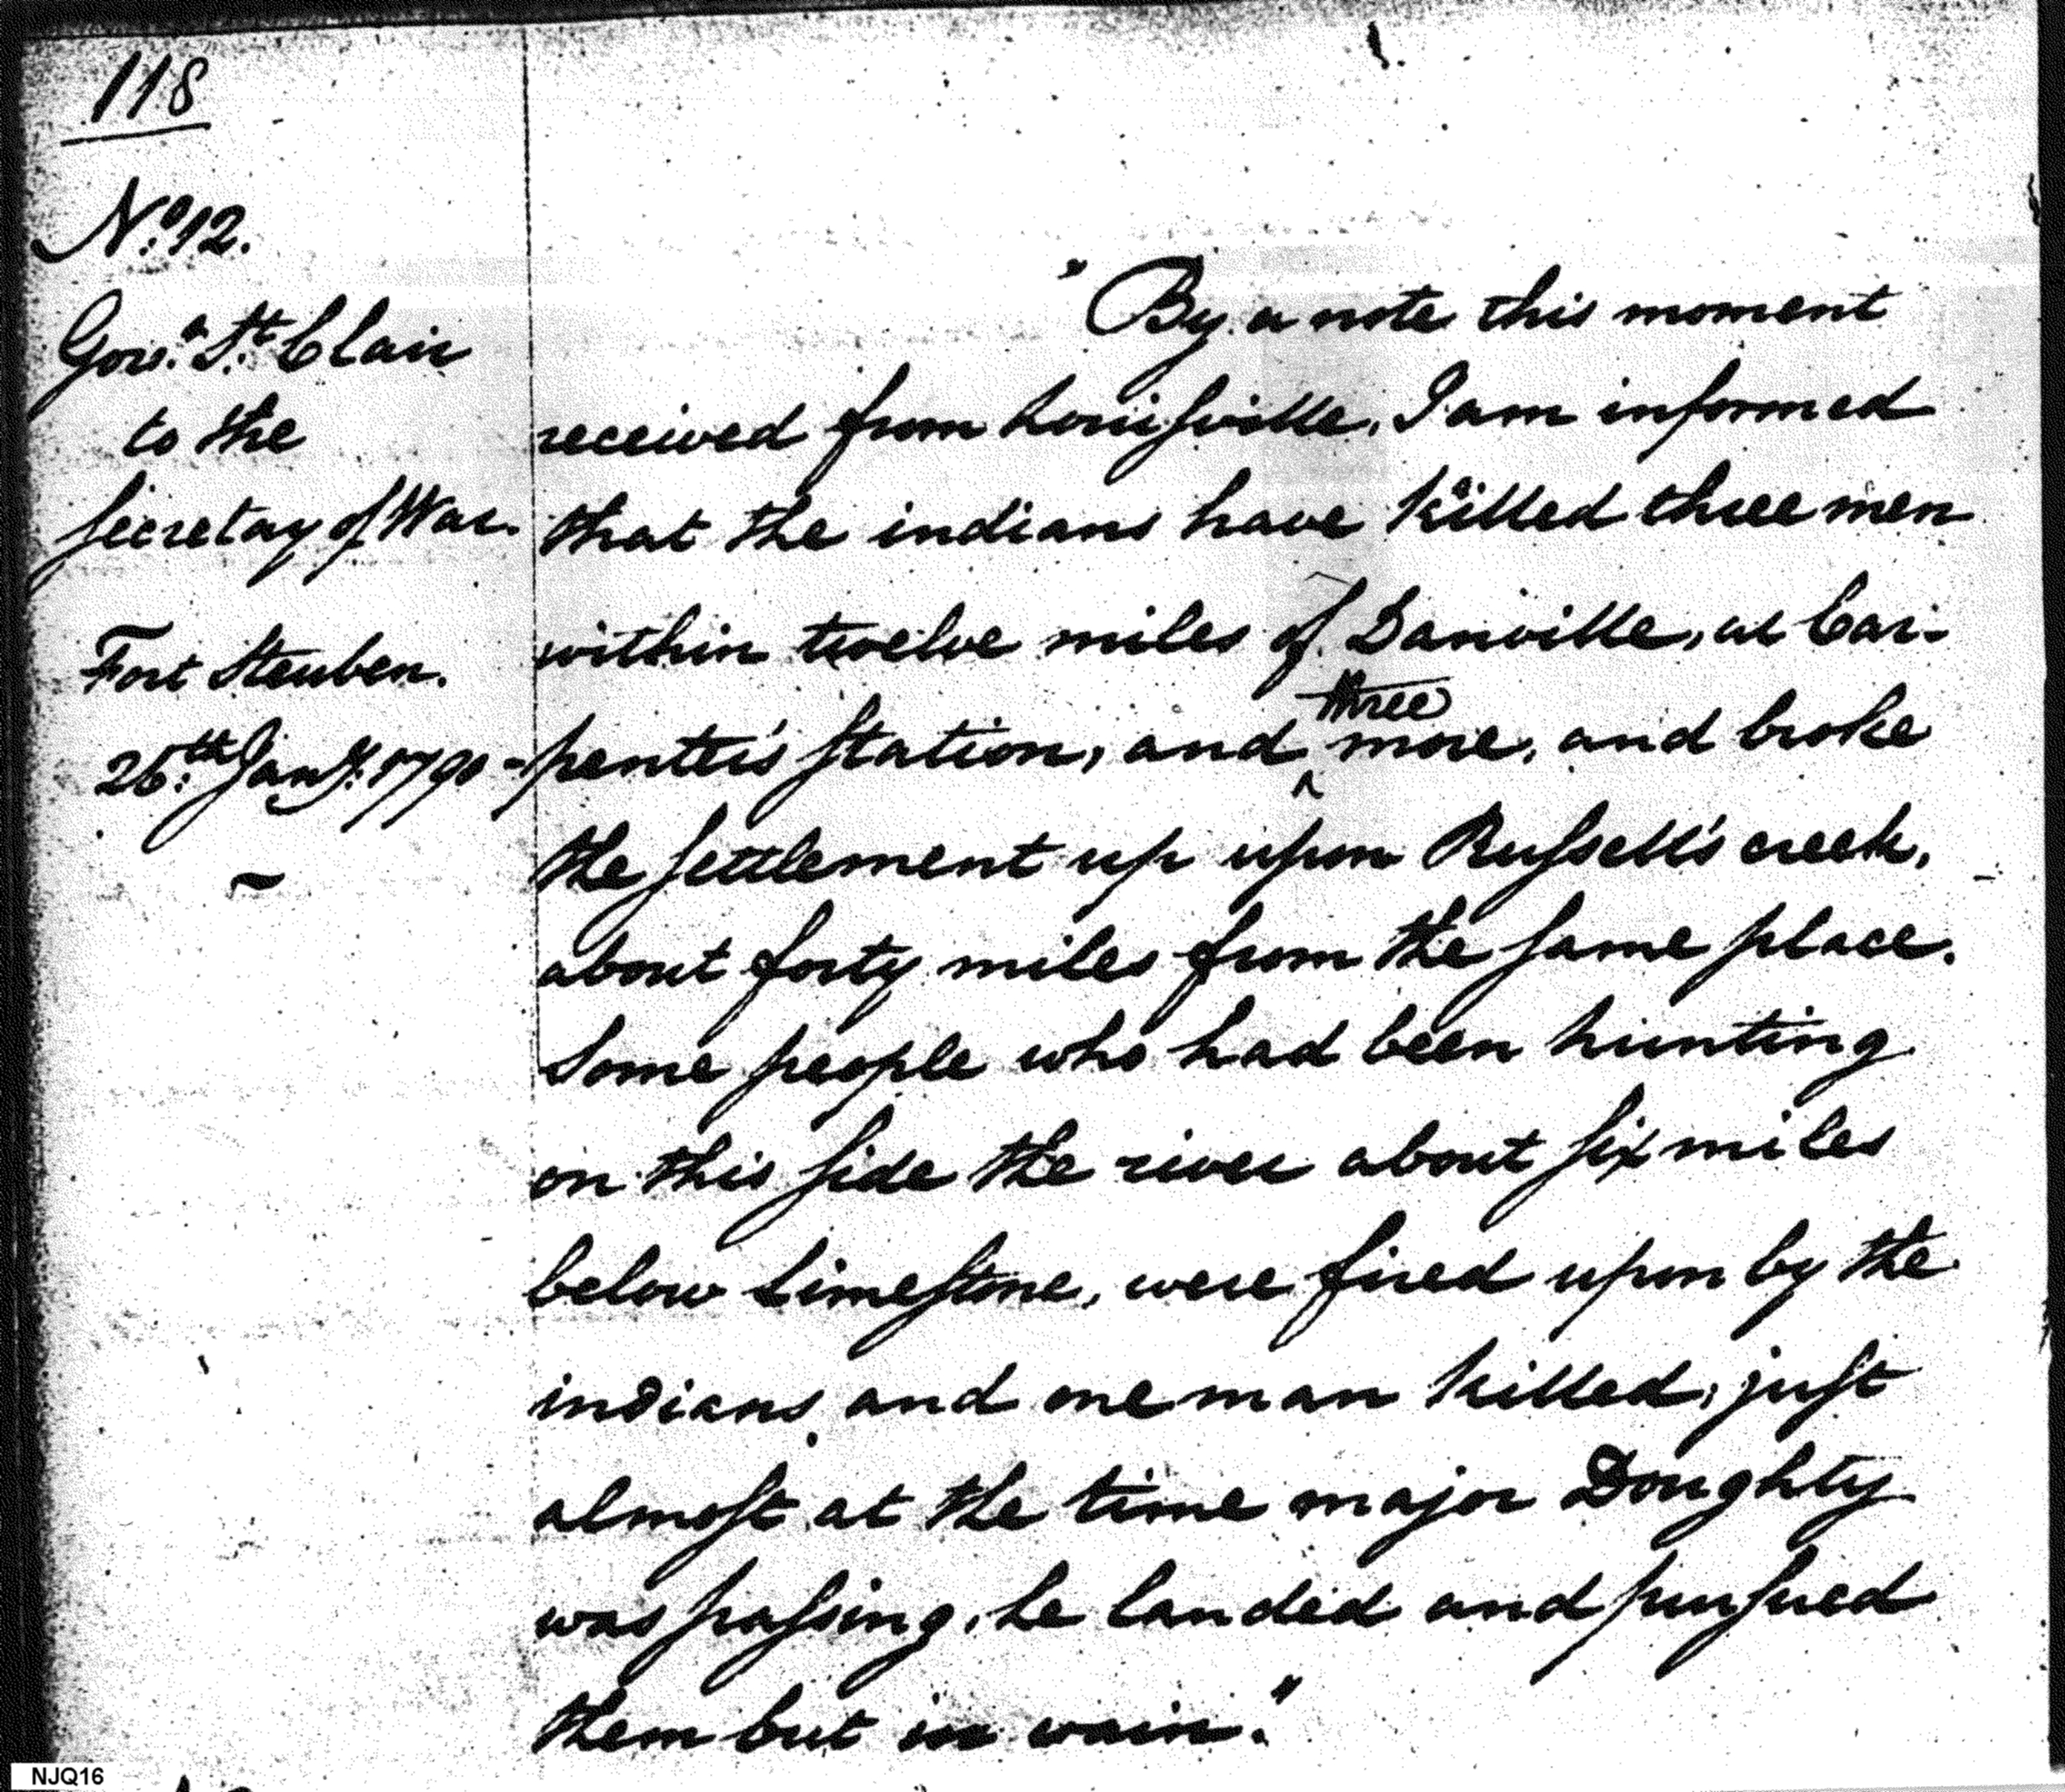 118
No. 12.
Govr. St. Clair
to the
Secretay of War.
Fort Steuben.
26th. Jany. 1790-
"By a note this moment
received from Louisville, I am informed
that the indians have killed three men
within twelve miles of Danville, at Car-
penter's Station, and three more, and broke
the settlement up upon Russell's creek,
about forty miles from the same place.
Some people who had been hunting
on this side the river about six miles
below Limestone, were fired upon by the
indians and one man killed, just
almost at the time major Doughty
was passing, he landed and pursued
them but in vain."
NJQ16